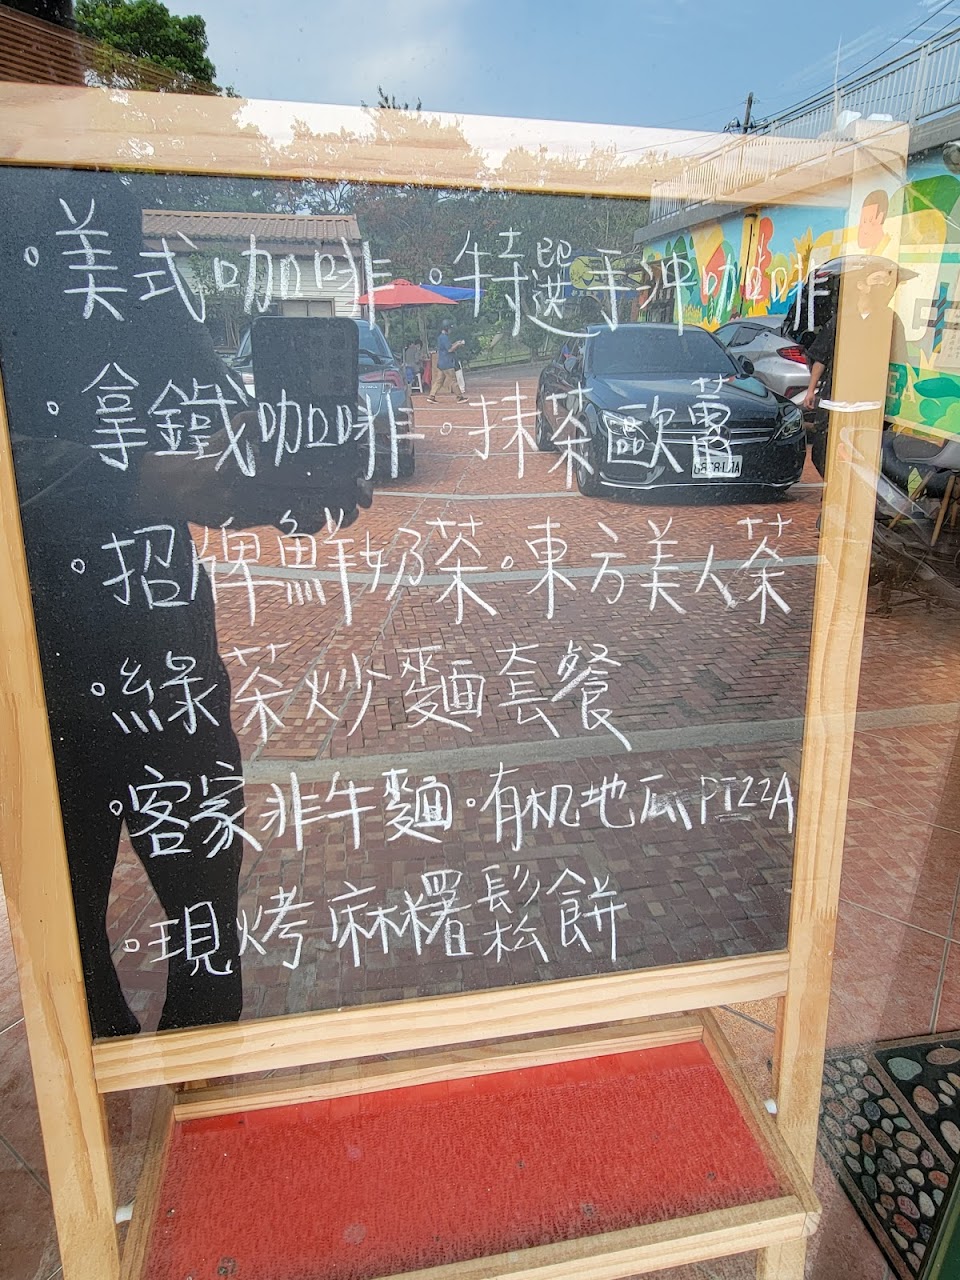 。美式咖啡。特選手沖咖啡
。拿鐵咖啡。抹茶歐蕾
。招牌鮮奶茶。東方美人茶
。綠茶炒麵套餐
。客家非牛麵。有机地瓜PIZZA
。現烤麻糬鬆餅